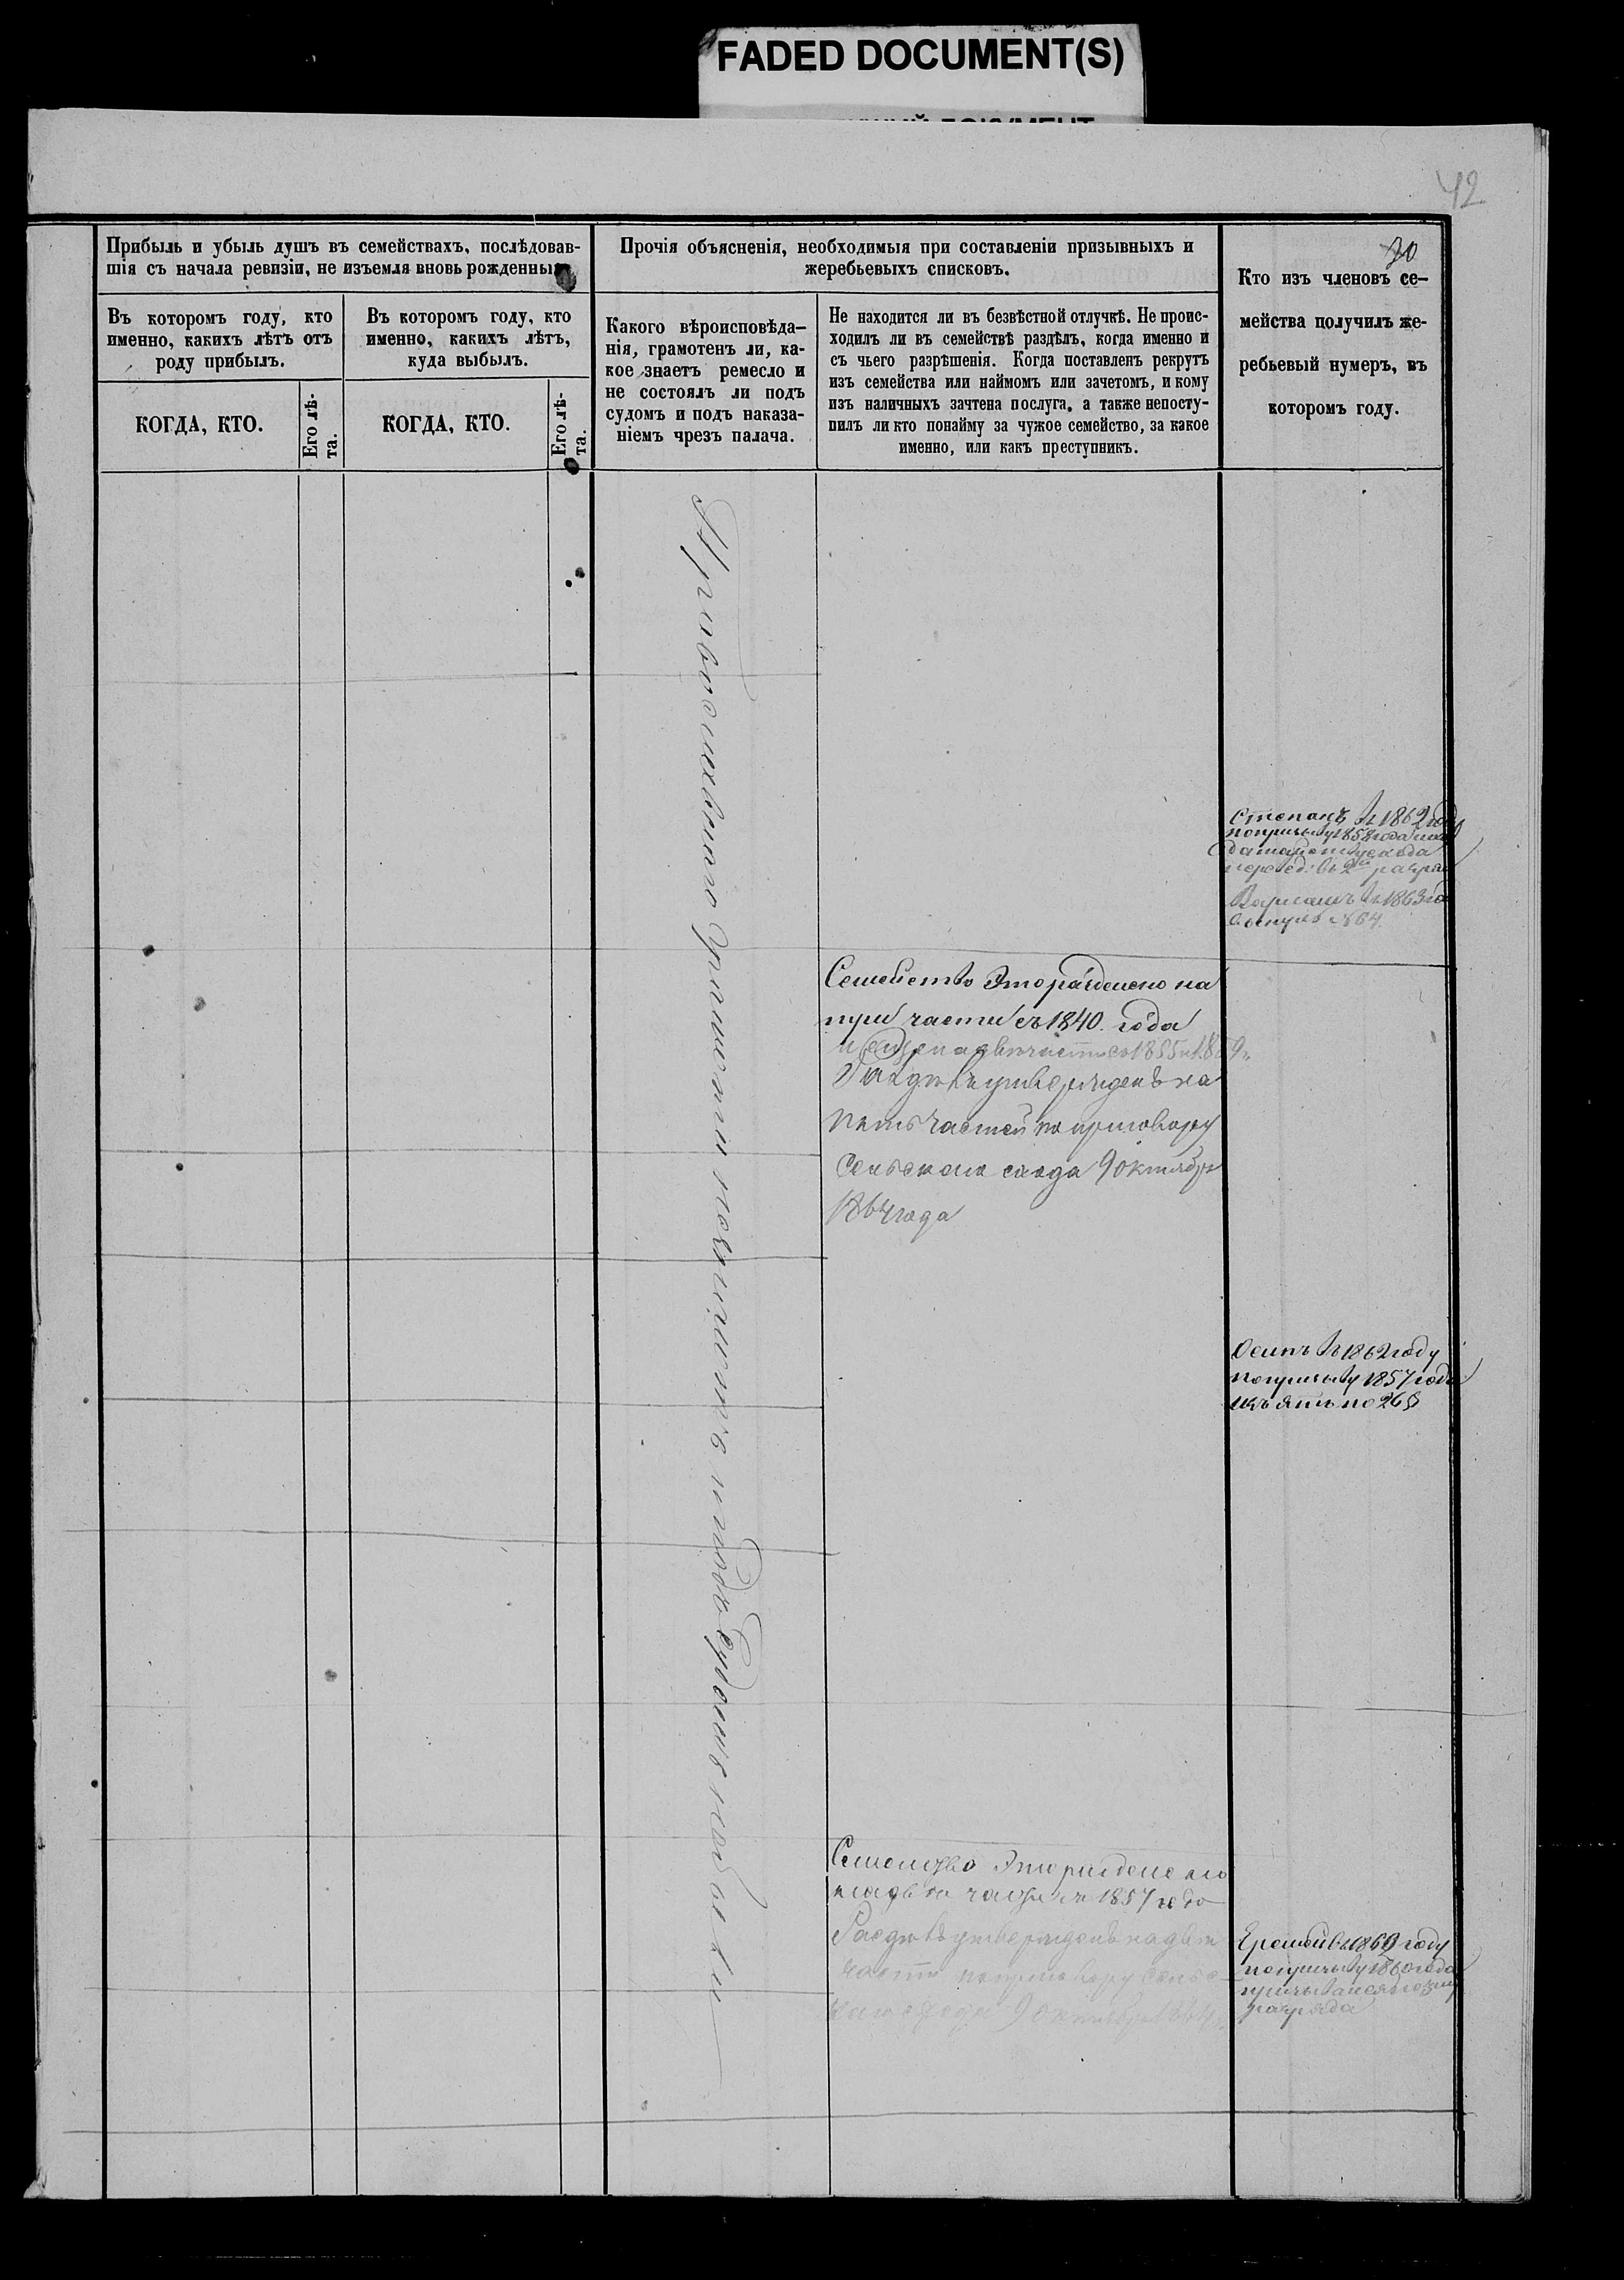 FADED DOCUMENT(S)
42
30
Прибыль и убыль душъ въ семействахъ, послѣдовав-
шія съ начала ревизіи, не изъемля вновь рожденныхъ
Въ которомъ году, кто
именно, какихъ лѣтъ отъ
роду прибылъ.
КОГДА, КТО.
Его лѣ-
та.
Въ которомъ году, кто
именно, какихъ лѣтъ,
куда выбылъ.
КОГДА, КТО.
Его лѣ-
та.
Прочія объясненія, необходимыя при составленіи призывныхъ и
жеребьевыхъ списковъ.
Какого вѣроисповѣда-
нія, грамотенъ ли, ка-
кое знаетъ ремесло и
не состоялъ ли подъ
судомъ и подъ наказа-
ніемъ чрезъ палача.
Не находится ли въ безвѣстной отлучкѣ. Не проис-
ходилъ ли въ семействѣ раздѣлъ, когда именно и
съ чьего разрѣшенія. Когда поставленъ рекрутъ
изъ семейства или наймомъ или зачетомъ, и кому
изъ наличныхъ зачтена послуга, а также непосту-
пилъ ли кто понайму за чужое семейство, за какое
именно, или какъ преступникъ.
Кто изъ членовъ се-
мейства получилъ же-
ребьевый нумеръ, въ
которомъ году.
Православнаго и подъ Судомъ небыли
Степанъ въ 1862 году
попризыву 1858 года
въ 2й разря
въ 1863 го
№ 64.
Семейство Это раздѣлено на
три части съ 1840. года
и еще на двѣ части съ 1855 и 1859
Раздѣлъ утвержденъ на
пять частей по приговору
Сельскаго схода 9 октября
1864 года
Осипъ въ 1862 году
попризыву 1857 года
изъятъ по 26 §
Семейство Это раздѣлено
на двѣ части съ 1857 года
Раздѣлъ утвержденъ на двѣ
части по приговору Сельс
каго схода 9 октября 1864
Еремей въ 1860 году
попризыву 1860 года
разряда